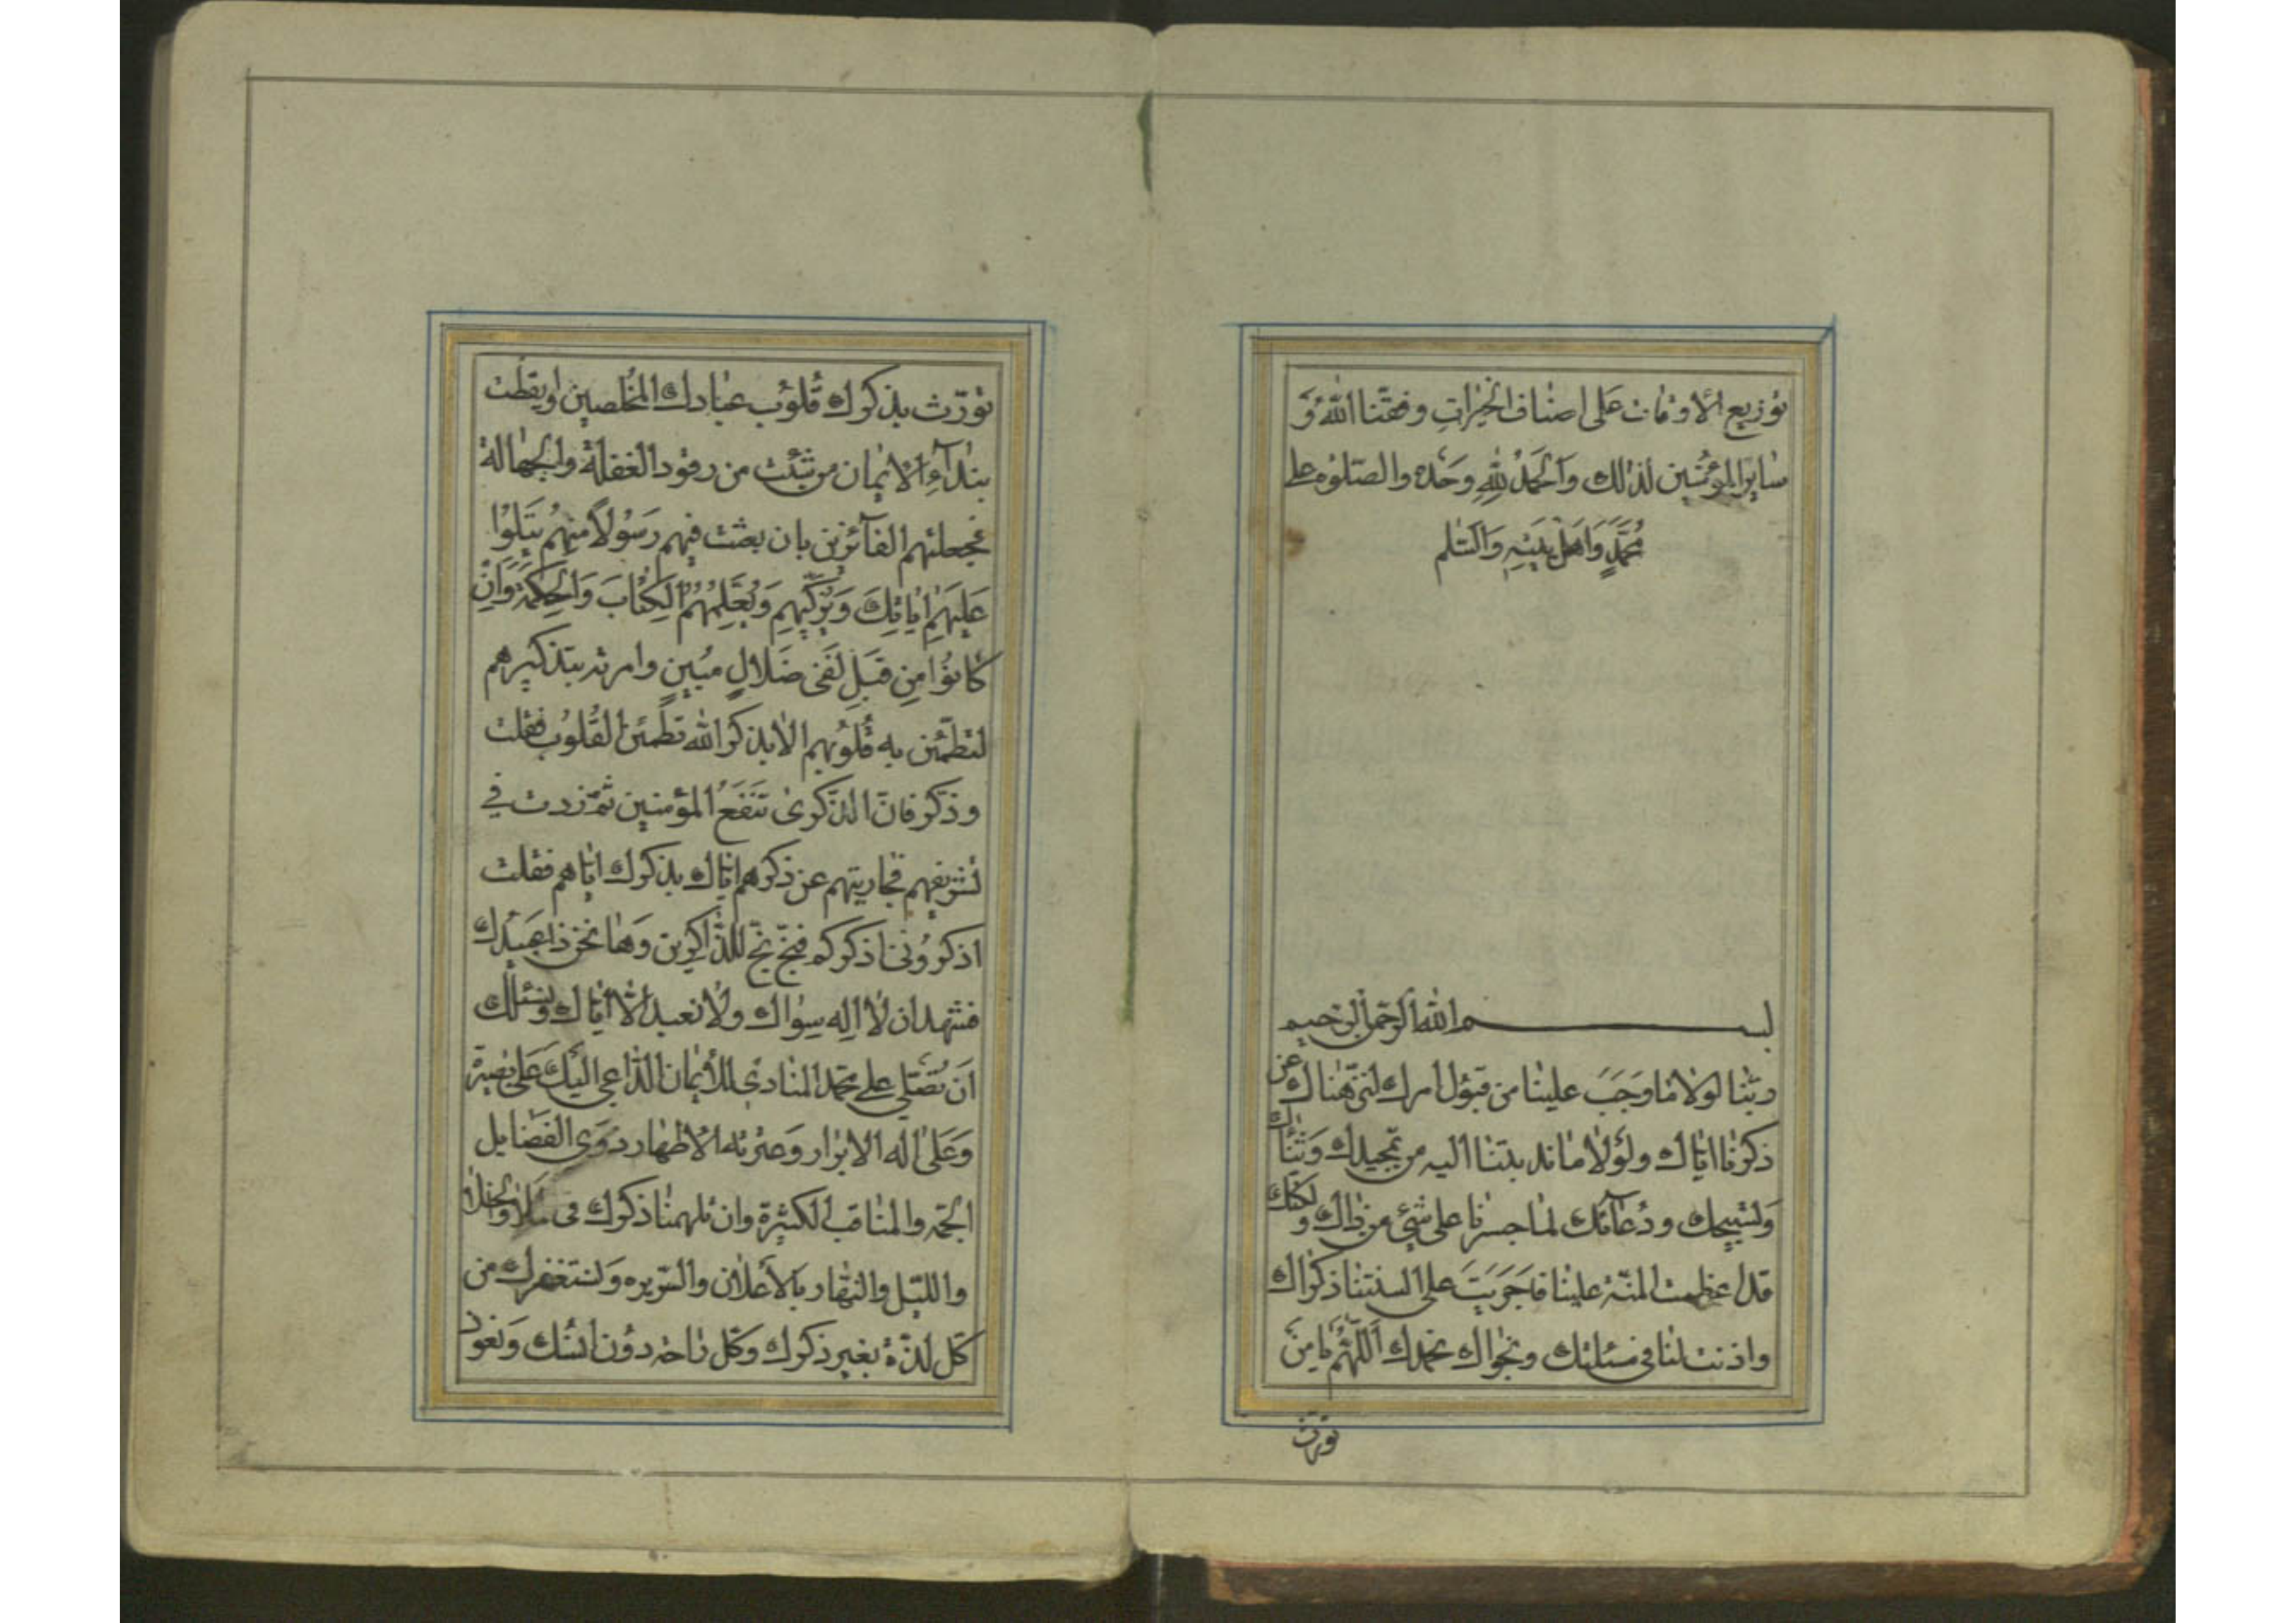 توزيع الاوقات على اصناف الخيرات وفقنا الله و
ساير المؤمنين لذلك والحمد لله وحده والصلوة على
محمد واهل بيته والسلم
بسم الله الرحمن الرحيم
ربنا لولا ما وجب علينا من قبول امرك لنزهناك عن
ذكرنا اياك ولولا ما ندبتنا اليه من تمجيدك وثنائك
وتسبيحك ودعائك لما جسرنا على شيء من ذاك ولكنك
قد عظمت المنة علينا فاجريت على السنتنا ذكراك
واذنت لنا في مسئلتك ونجواك نحمدك اللهم يا من
نورت
نورت بذكرك قلوب عبادك المخلصين وايقظت
بندآء الايمان من شئت من رقود الغفلة والجهالة
فجعلتهم الفآئزين بان بعثت فيهم رسولا منهم يتلوا
عليهم اياتك ويزكيهم ويعلمهم الكتاب والحكمة وان
كانوا من قبل لفي ضلال مبين وامرته بتذكيرهم
لتطمئن به قلوبهم الا بذكر الله تطمئن القلوب فقلت
وذكر فان الذكرى تنفع المؤمنين ثم زدت في
تشريفهم فجازيتهم عن ذكرهم اياك بذكرك اياهم فقلت
اذكروني اذكركم فبخ بخ للذاكرين وها نحن ذا عبيدك
نشهد ان لا اله سواك ولا نعبد الا اياك ونسئلك
ان تصلي على محمد المنادي للايمان الداعي اليك على بصيرة
وعلى اله الابرار وعترته الاطهار ذوي الفضايل
الجمة والمناقب الكثيرة وان تلهمنا ذكرك في الملاء والخلاء
والليل والنهار بالاعلان والسريره ونستغفرك من
كل لذة بغير ذكرك وكل راحة دون انسك ونعوذ